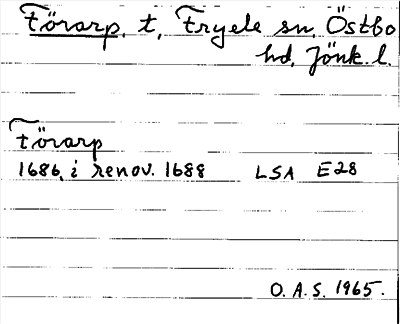 Förarp, t, Fryele sn, Östbo
hd, Jönk. l.
Förarp
1686, i renov. 1688 LSA E28
O.A.S. 1965.